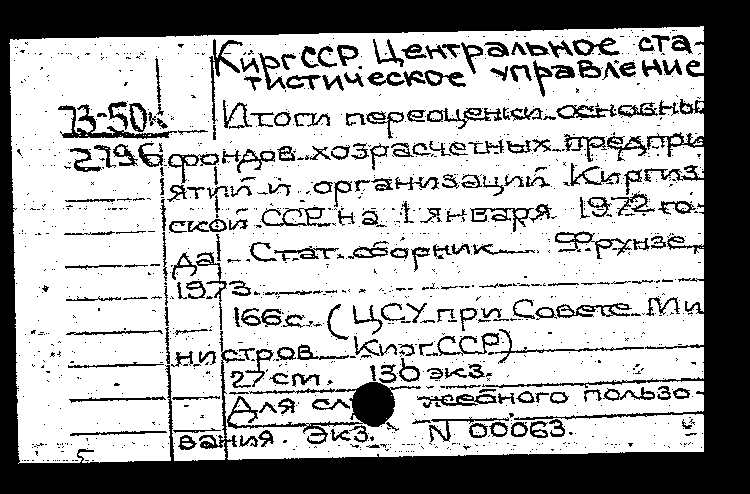 КиргССР. Центральное ста-
тистическое управление
73-50к
Итоги переоценки основны
2796 фондов хозрасчетных предпри
ятий и организаций Киргиз-
ской ССР на 1 января 1972 го-
да. Стат. сборник. Фрунзе,
1973.
166 с. (ЦСУ при Совете Ми
нистров КиргССР).
27 cm. 130 экз.
Для сл жебного пользо-
вания. Экз. N 00063.